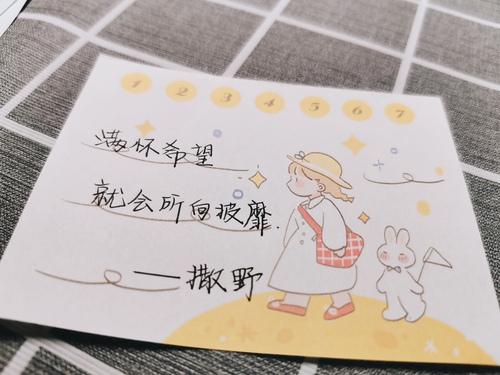 1 2 3 4 5 6 7
满怀希望
就会所向披靡.
——撒野